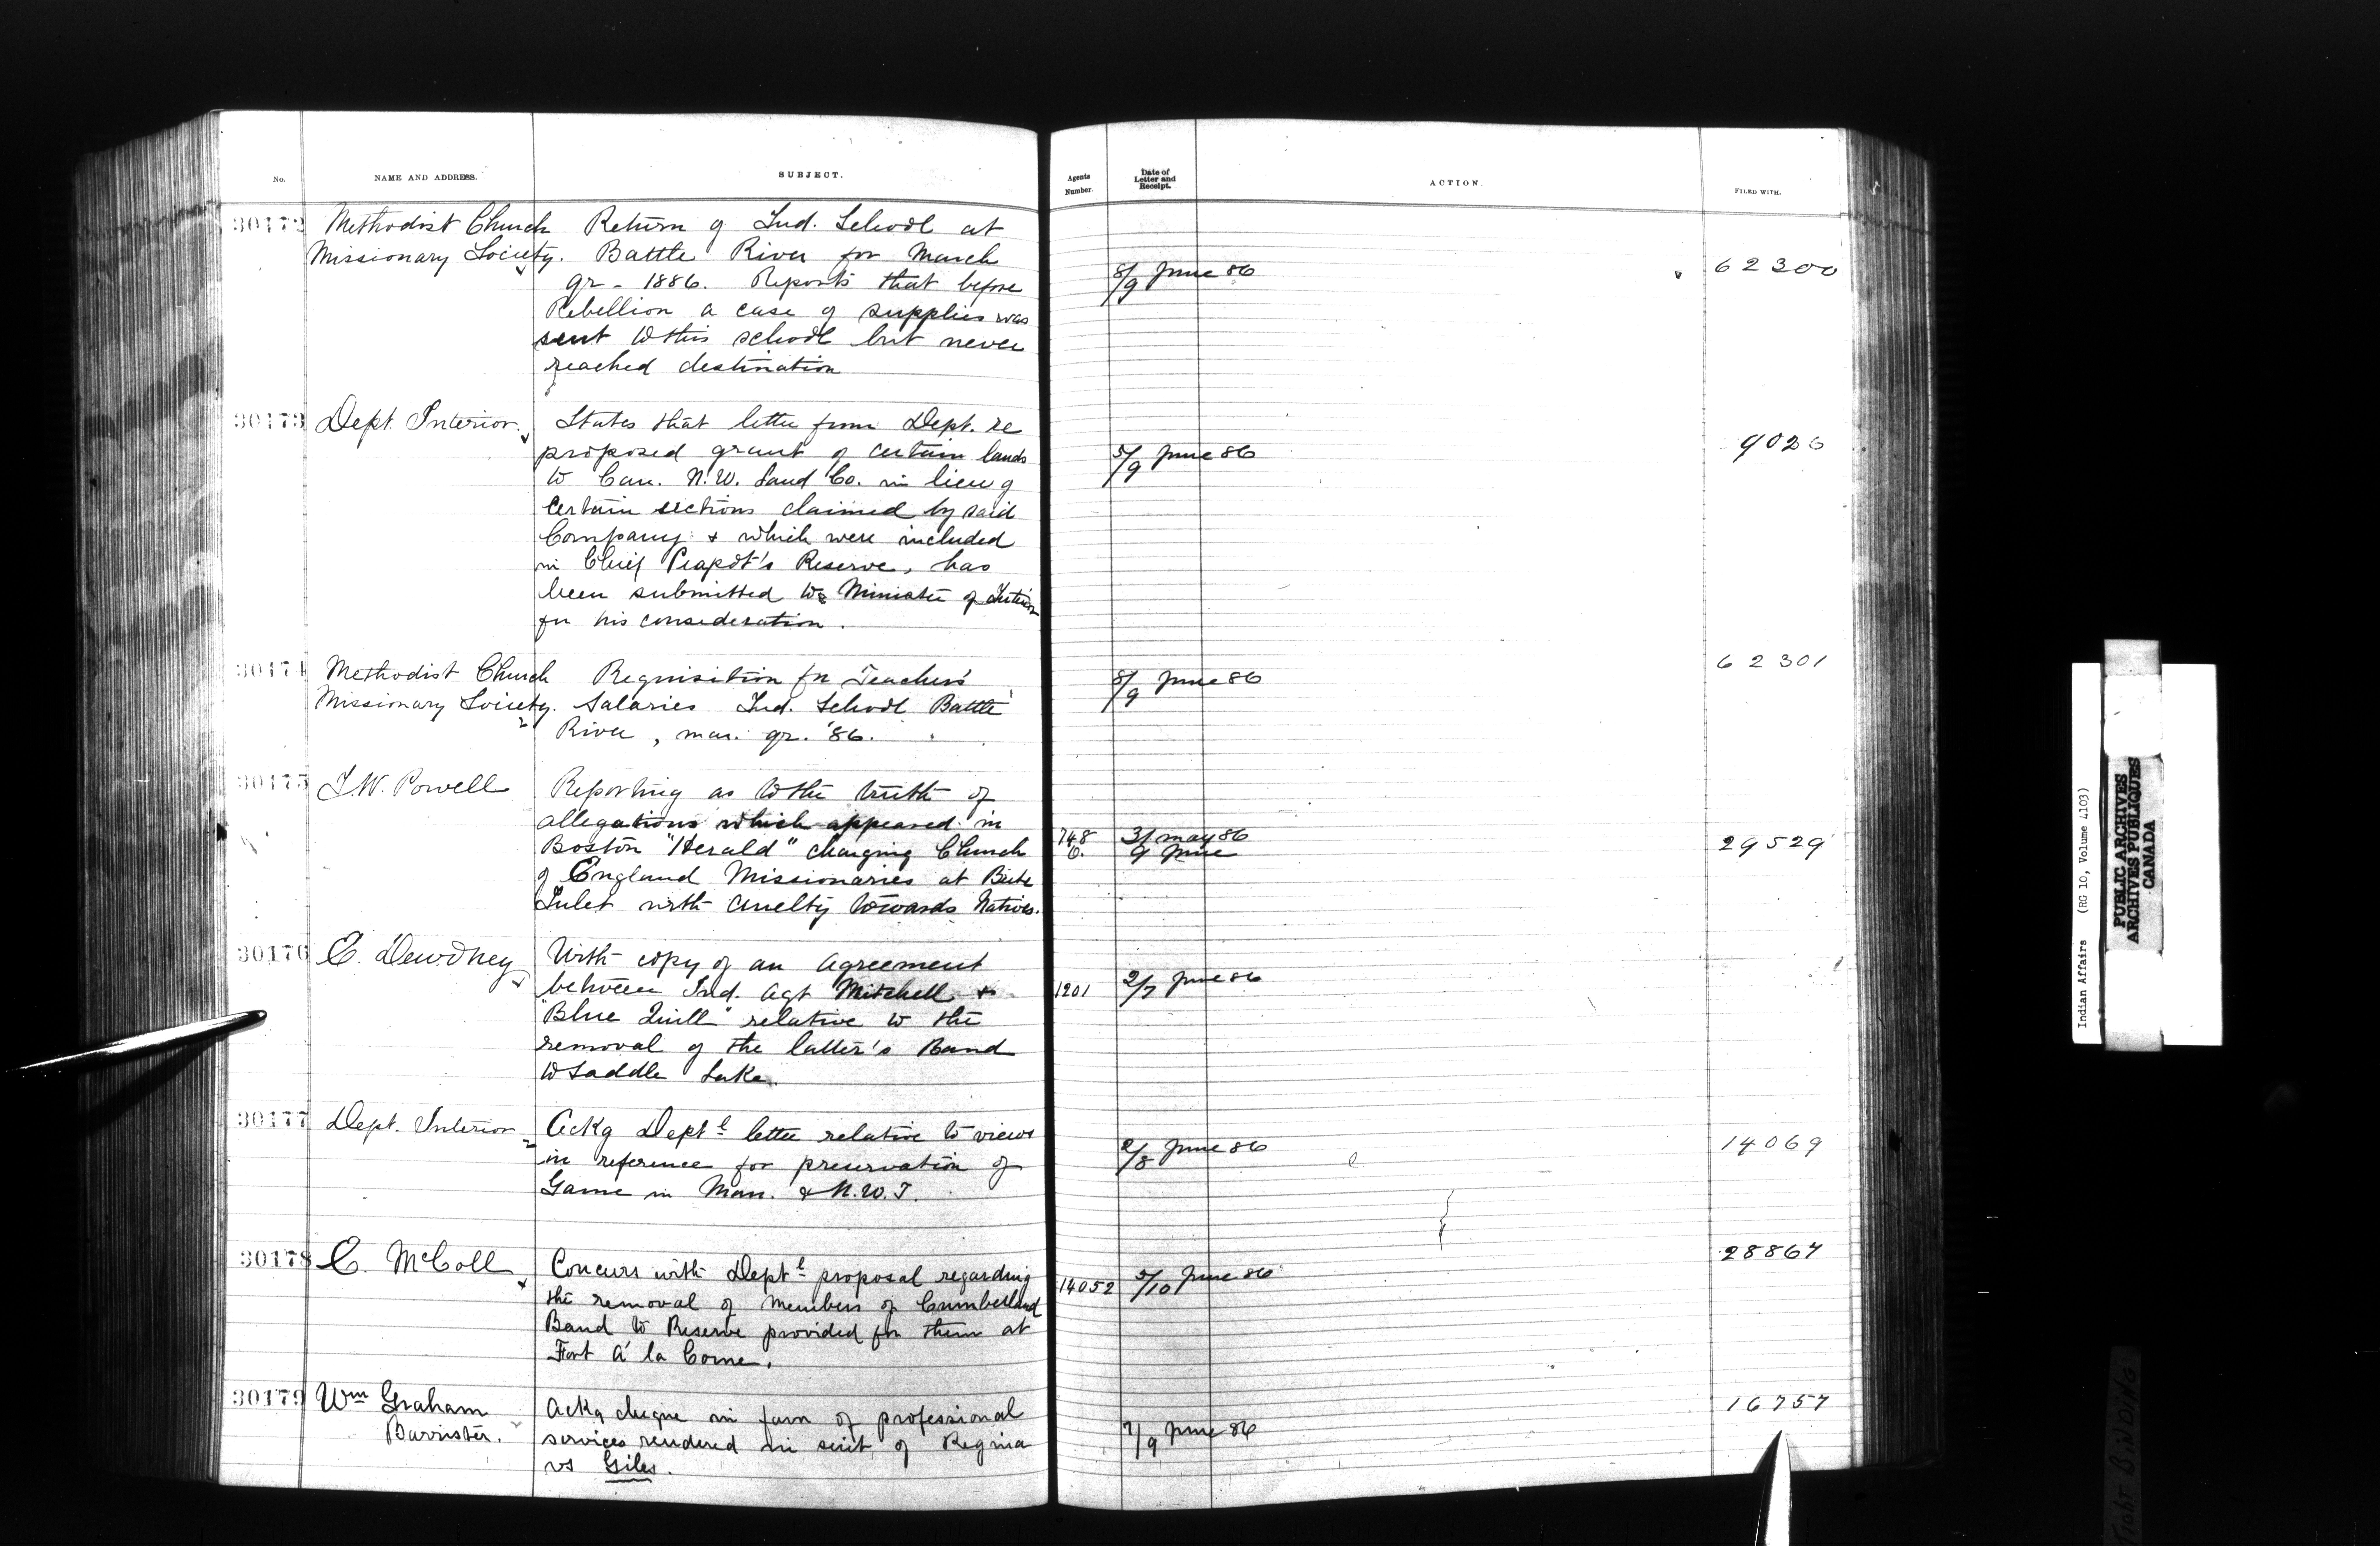 No. NAME AND ADDRESS. SUBJECT. Agents Number. Date of Letter and Receipt. ACTION. FILED WITH.
30172 Methodist Church Return of Ind. School at
Missionary Society. Battle River for March
qr - 1886. Reports that before 8/9 June 86 62300
Rebellion a case of supplies was
sent to this school but never
reached destination
30173 Dept. Interior. States that letter from Dept. re
proposed grant of certain lands 5/9 June 86 9026
to Can. N.W. Land Co. in lieu of
certain sections claimed by said
Company & which were included
in Chief Peapot's Reserve, has
been submitted to Minister of Interior
for his consideration.
30174 Methodist Church Requisition for Teachers' 8/9 June 86 62301
Missionary Society. Salaries Ind. School Battle
River, mar. qr. '86.
30175 I.W. Powell Reporting as to the truth of
allegations which appeared in 748 31 may 86
Boston "Herald" charging Church 6. 9 June 29529
of England Missionaries at Bute
Inlet with cruelty towards Natives.
30176 E. Dewdney With copy of an agreement
between Ind. Agt Mitchell & 1201 2/7 June 86
"Blue Quill" relative to the
removal of the latter's Band
to Saddle Lake.
30177 Dept. Interior Ackg Deptl letter relative to views
in reference for preservation of 2/8 June 86 14069
Game in Man. & N.W.T.
30178 E. McColl Concurs with Deptl proposal regarding 14052 5/10 June 86 28867
the removal of members of Cumberland
Band to Reserve provided for them at
Fort á la Corne.
30179 Wm Graham Ackg cheque in favr of professional 16757
Barrister. services rendered in suit of Regina 7/9 June 86
vs Giles.
Indian Affairs (RG 10, Volume 4103)
PUBLIC ARCHIVES
ARCHIVES PUBLIQUES
CANADA
TIGHT BINDING